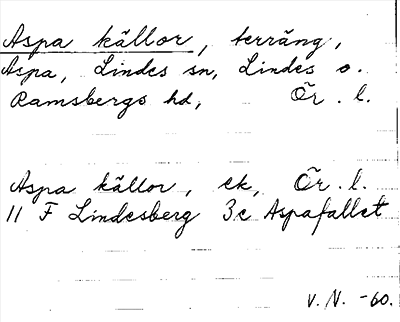 Aspa källor, terräng,
Aspa, Lindes sn, Lindes o.
Ramsbergs hd, Ör. l.
Aspa källor, ek, Ör. l.
11 F Lindesberg 3c Aspafallet
V. N. -60.